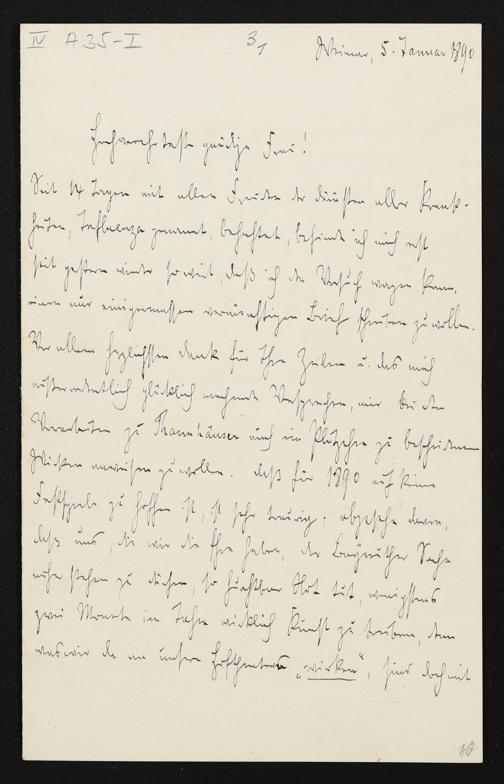 IV A 35-I
3/1
Weimar, 5. Januar 1890
Hochverehrteste gnädige Frau!
Seit 14 Tagen mit allen Freuden der dümmsten aller Krank-
heiten, Influenza genannt, behaftet, befinde ich mich erst
seit gestern wieder so weit, daß ich den Versuch wagen kann,
einen nur einigermassen vernünftigen Brief schreiben zu wollen.
Vor allem herzlichsten Dank für Ihre Zeilen u. das mich
außerordentlich glücklich machende Versprechen, mir bei den
Vorarbeiten zu Tannhäuser auch ein Plätzchen zu bescheidenem
Wirken anweisen zu wollen. Daß für 1890 auf keine
Festspiele zu hoffen ist, ist sehr traurig; abgesehen davon,
daß uns, die wir die Ehre haben, der Bayreuther Sache
näher stehen zu dürfen, so furchtbar Not tut, wenigstens
zwei Monate im Jahre wirklich Kunst zu treiben, denn
was wir da an unsern Hoftheatern „wirken“, sind doch mit